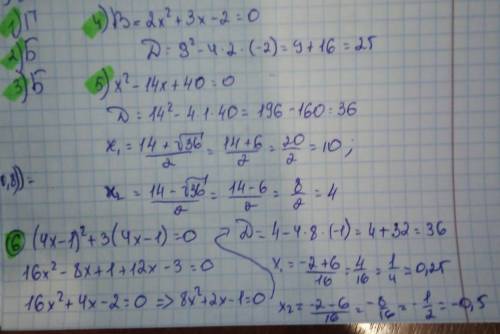 1) П
2) Б
3) Б
4) В = 2x² + 3x - 2 = 0
D = 9² - 4·2·(-2) = 9 + 16 = 25
5) x² - 14x + 40 = 0
D = 14² - 4·1·40 = 196 - 160 = 36
x₁ = (14 + √36)/2 = (14+6)/2 = 20/2 = 10;
x₂ = (14 - √36)/2 = (14-6)/2 = 8/2 = 4
6) (4x-1)² + 3(4x-1) = 0
16x² - 8x + 1 + 12x - 3 = 0
16x² + 4x - 2 = 0 => 8x² + 2x - 1 = 0
D = 4 - 4·8·(-1) = 4 + 32 = 36
x₁ = (-2+6)/16 = 4/16 = 1/4 = 0,25
x₂ = (-2-6)/16 = -8/16 = -1/2 = -0,5